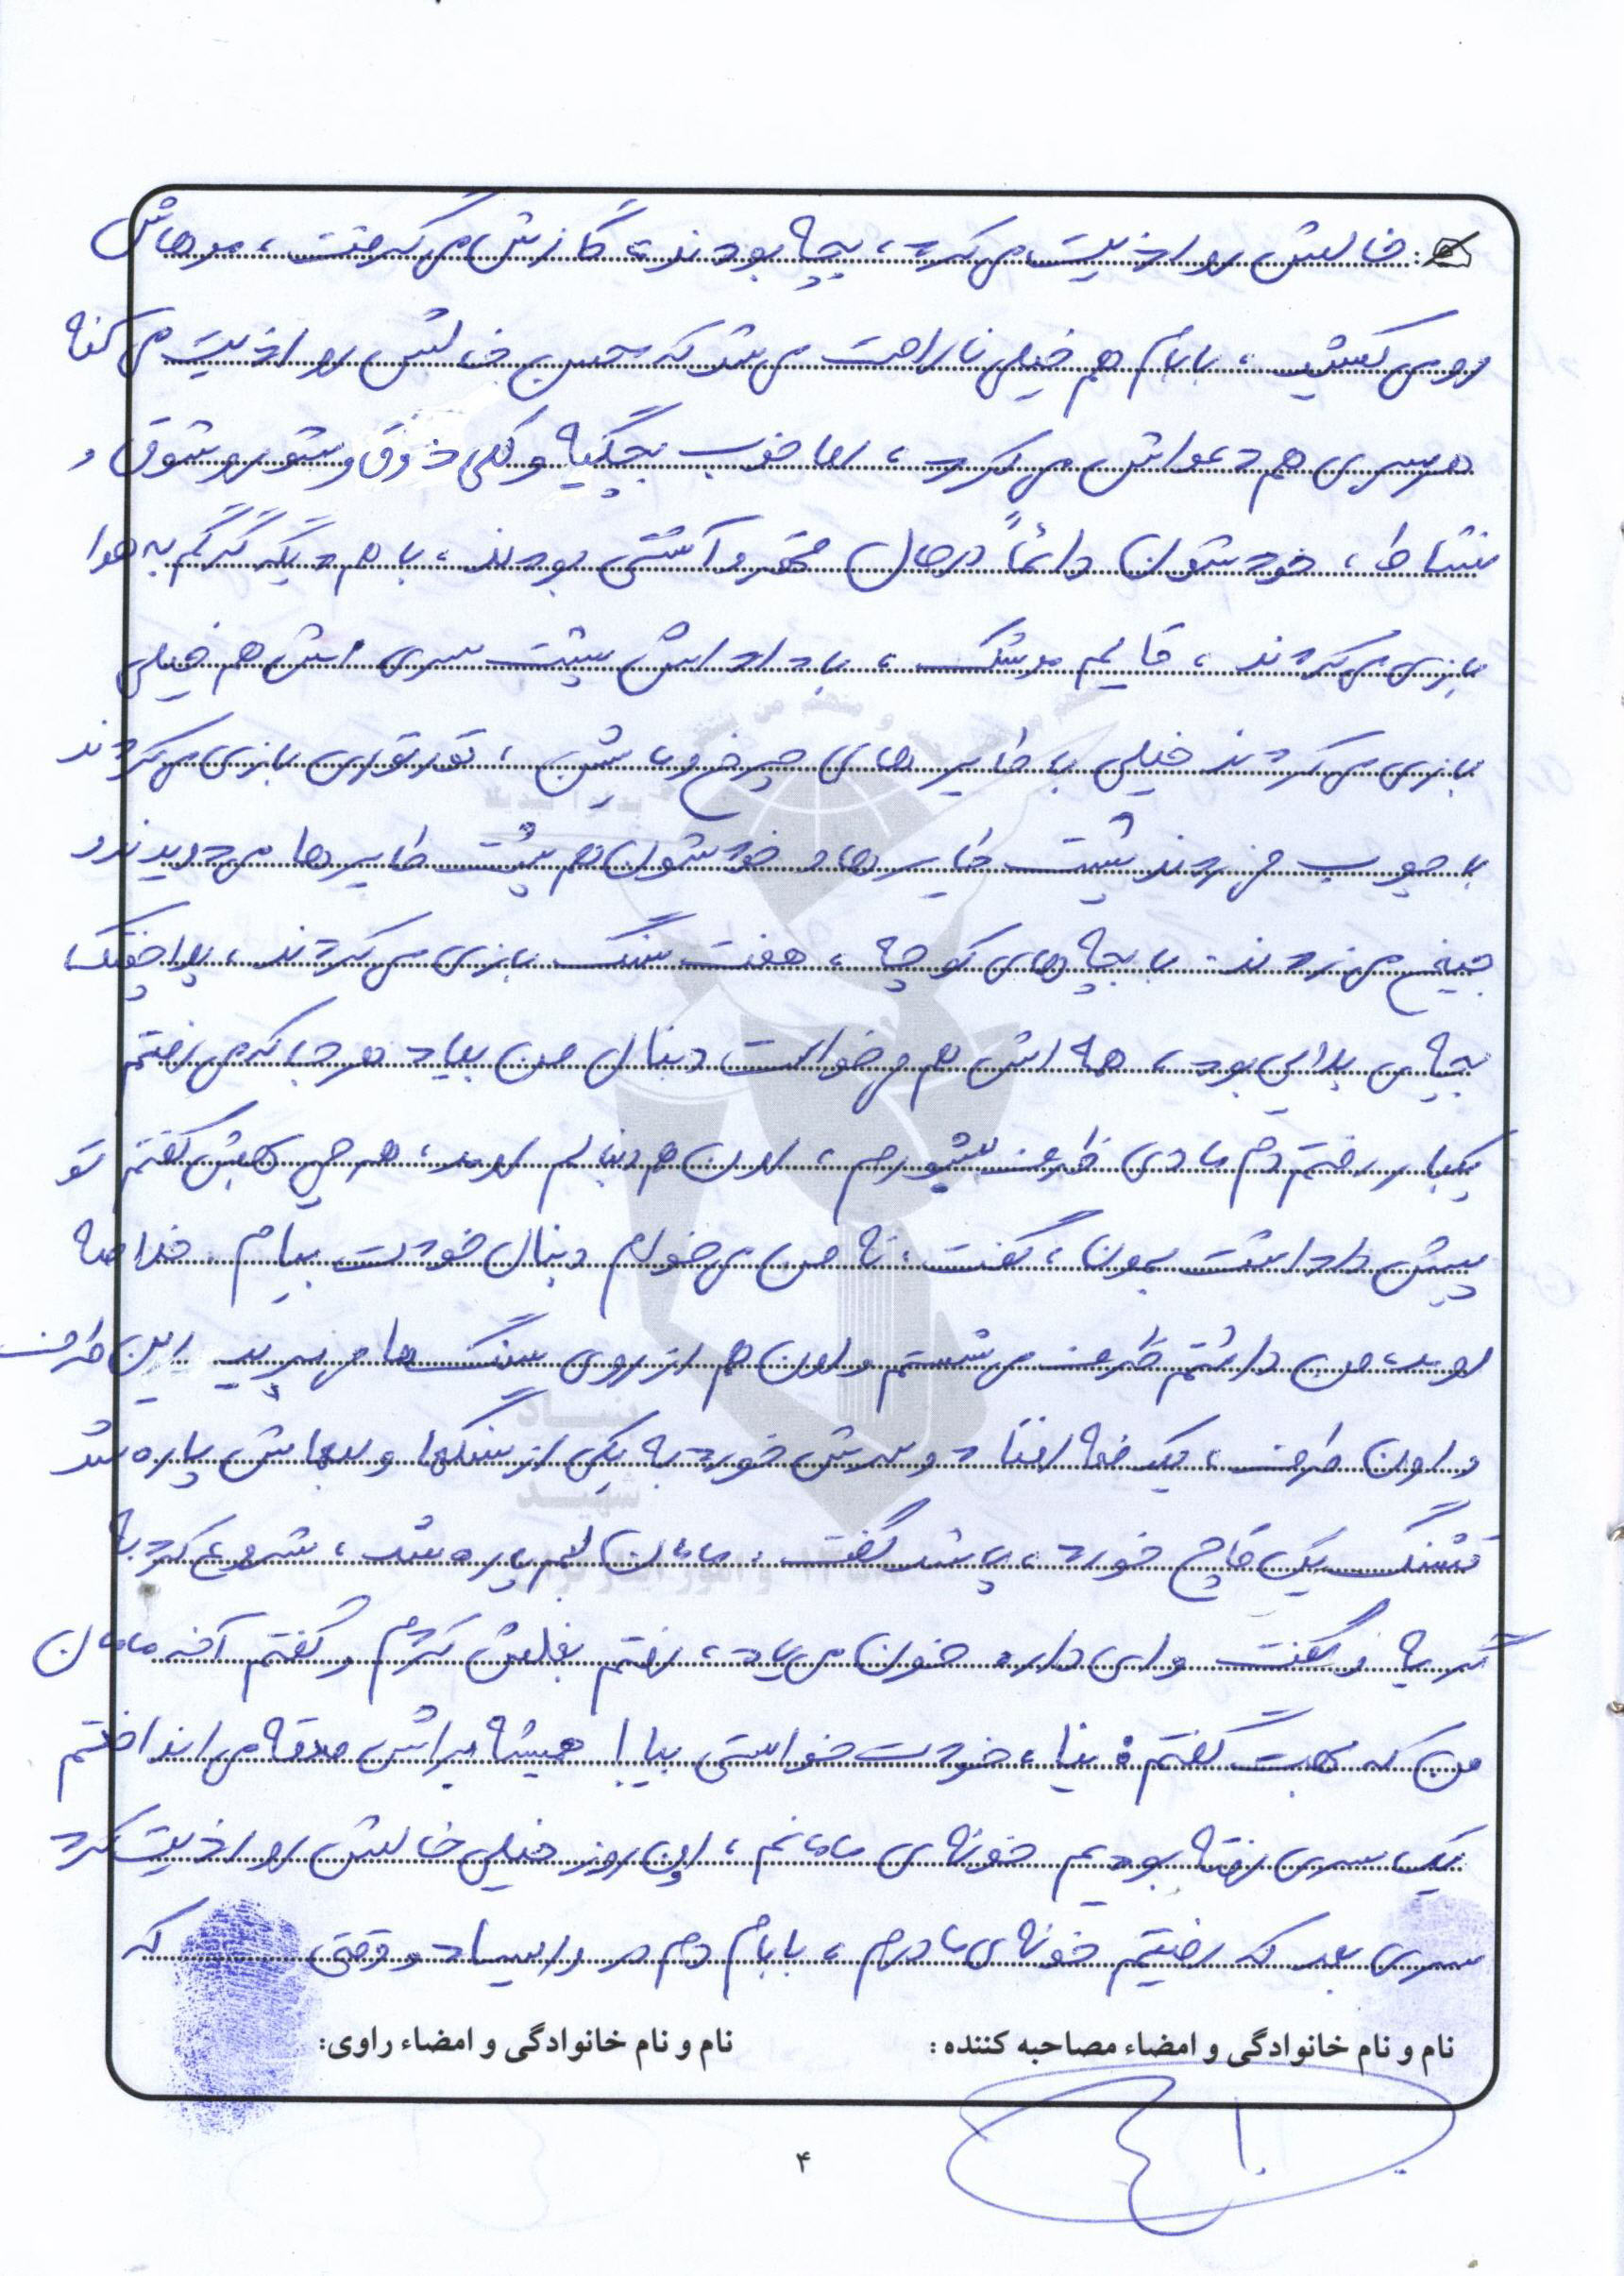 خالش رو اذیت می‌کرد، بچه بودند، گازش می‌گرفت، موهاش
رو می‌کشید، بابام هم خیلی ناراحت می‌شد که حسین خالش رو اذیت می‌کنه
هر سری هم دعواش می‌کرد، اما خوب بچگیه و کلی ذوق و شور و شوق و
نشاط، خودشون دائماً در حال قهر و آشتی بودند، با همدیگه گرگم به هوا
بازی می‌کردند، قایم موشک، با داداش پشت سری اش هم خیلی
بازی می‌کردند خیلی با طایرهای چرخ و ماشین، تور توری بازی می‌کردند
با چوب می‌زدند پشت طایرها و خودشون هم پشت طایرها می‌دویدند و
جیغ می‌زدند. با بچه‌های کوچه، هفت سنگ بازی می‌کردند،
بچه‌ی بلایی بود، همه اش هم می‌خواست دنبال من بیاد هر جا که می‌رفتم
یکبار رفتم دم مادی ظرف بشورم، اون هم دنبالم اومد، هر چی بهش گفتم تو
پیش داداشت بمون، گفت: نه من می‌خوام دنبال خودت بیام. خلاصه
اومد، من داشتم ظرف می‌شستم و اون هم از روی سنگ ها می‌پرید این طرف
و اون طرف، یکدفعه افتاد و سرش خورد به یکی از سنگها و لبهاش پاره شد
قشنگ یک قاچ خورد، پاشد گفت: مامان لبم پاره شد، شروع کرد به
گریه و گفت وای داره خون می‌یاد، رفتم بغلش کردم و گفتم آخه مامان
من که بهت گفتم نیا، خودت خواستی بیای! همیشه براش صدقه می‌انداختم
یک سری رفته بودیم خونه‌ی مامانم، اون روز خیلی خالش رو اذیت کرد
سری بعد که رفتیم خونه‌ی مادرم، بابام دم در وایساد و وقتی که
نام و نام خانوادگی و امضاء مصاحبه کننده: نام و نام خانوادگی و امضاء راوی:
۴